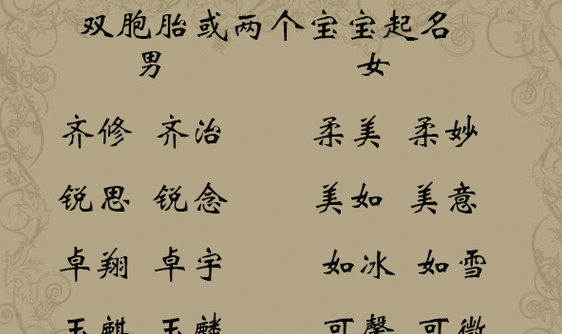 双胞胎或两个宝宝起名
男 女
齐修 齐治 柔美 柔妙
锐思 锐念 美如 美意
卓翔 卓宇 如冰 如雪
玉麒 玉麟 可馨 可微